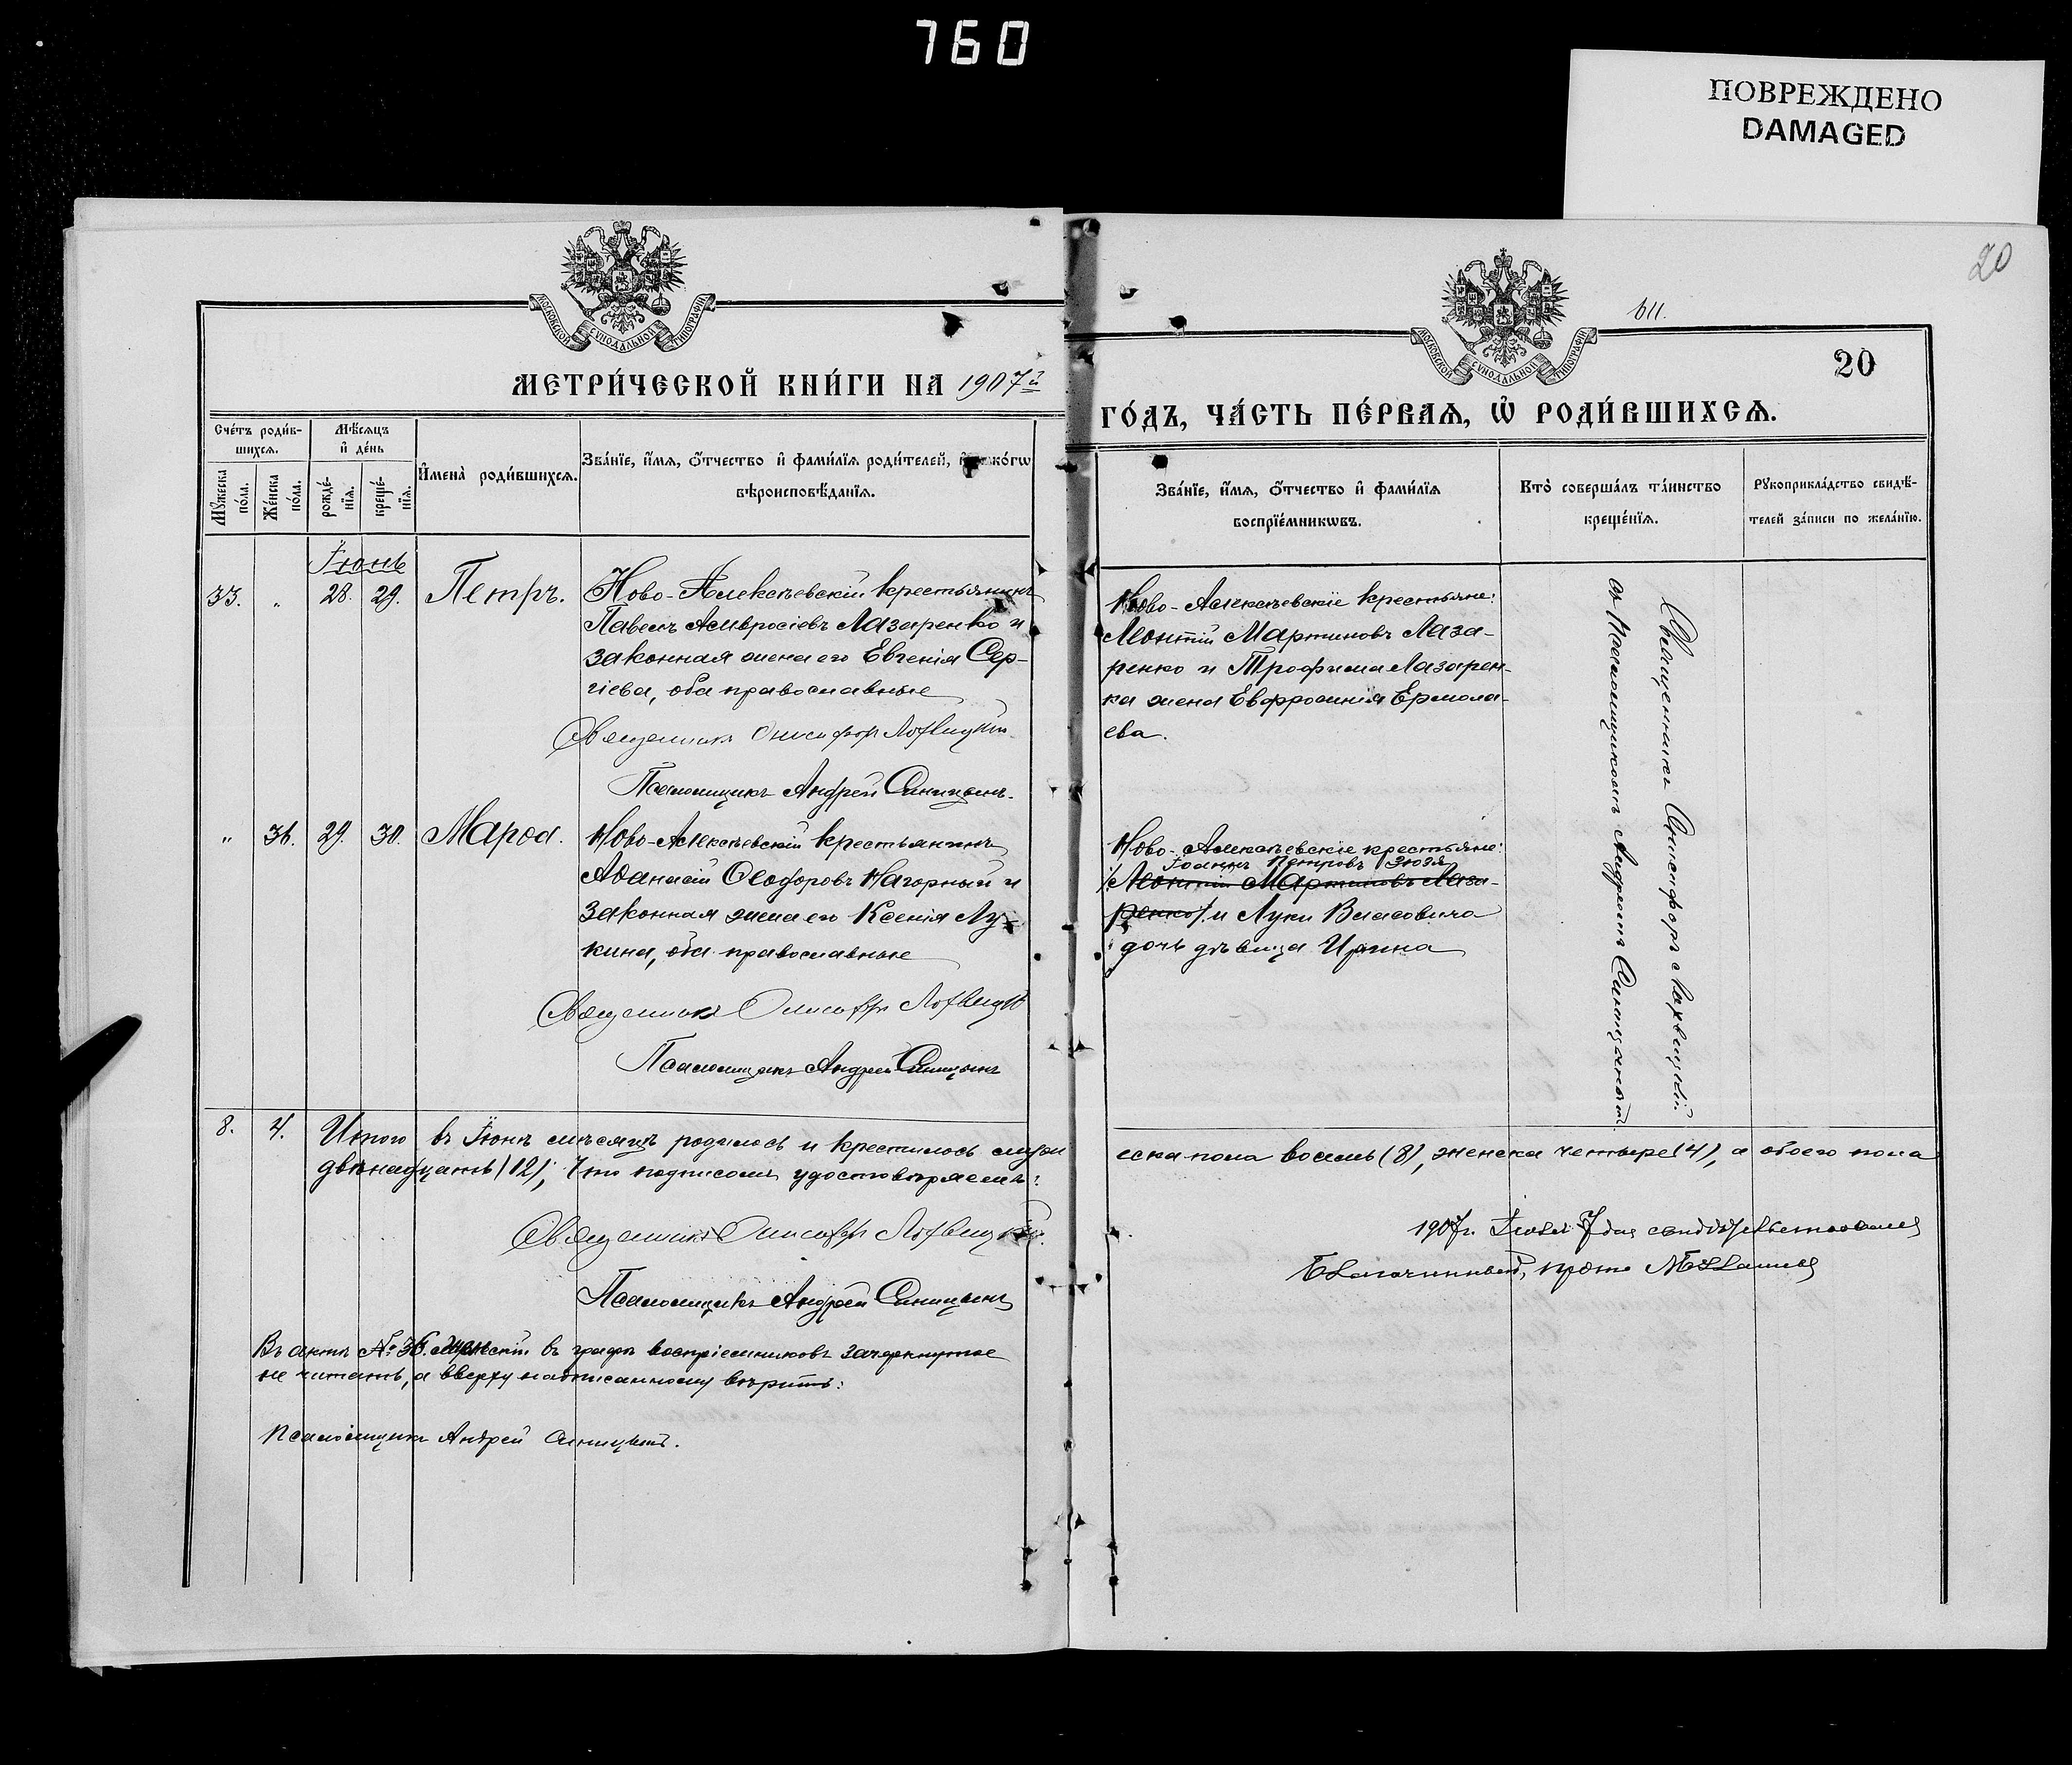 760
ПОВРЕЖДЕНО
DAMAGED
20
611.
20
МОСКОВСКОЙ СУНОДАЛЬНОЙ ТИПОГРАФІИ
МОСКОВСКОЙ СУНОДАЛЬНОЙ ТИПОГРАФІИ
МЕТРИ́ЧЕСКОЙ КНИ́ГИ НА 1907й
ГО́ДЪ, ЧА́СТЬ ПЕ́РВАѦ, Ѡ҆ РОДИ́ВШИХСѦ.
Сче́тъ роди́в-
шихсѧ.
Мꙋжеска по́ла.
Же́нска по́ла.
Мѣ́сѧцъ
и҆ де́нь
рожде́-
нїѧ.
креще́-
нїѧ.
И҆мена̀ роди́вшихсѧ.
Зва́нїе, и҆́мѧ, ѻ҆́тчество и҆ фами́лїѧ роди́телей, и҆ како́гѡ
вѣроисповѣ́данїѧ.
Зва́нїе, и҆́мѧ, ѻ҆́тчество и҆ фами́лїѧ
воспрїе́мникѡвъ.
Кто̀ соверша́лъ та́инство
креще́нїѧ.
Рꙋкоприкла́дство свидѣ́-
телей за́писи по жела́нїю.
Іюнь
33. „ 28. 29. Петръ.
Ново-Алексѣевскій крестьянинъ
Павелъ Амвросіевъ Лазаренко и
законная жена его Евгенія Сер-
гіева, оба православные
Священникъ Онисифоръ Лохвицкій.
Псаломщикъ Андрей Синицынъ.
Ново-Алексѣевскіе крестьяне:
Леонтій Мартиновъ Лаза-
ренко и Трофима Лазарен-
ка жена Евфросинія Ермола-
ева.
Священникъ Онисифоръ Лохвицкій
съ Псаломщикомъ Андреемъ Синицынымъ
„ 36. 29. 30. Марѳа.
Ново-Алексѣевскій крестьянинъ
Аѳанасій Ѳеодоровъ Нагорный и
законная жена его Ксенія Лу-
кина, оба православные
Священникъ Онисифоръ Лохвицкій
Псаломщикъ Андрей Синицынъ
Ново-Алексѣевскіе крестьяне:
Іоаннъ Петровъ Зюзя
Леонтій Мартиновъ Лаза-
ренко и Луки Власовича
дочь дѣвица Ирина
8. 4. Итого въ Іюнѣ мѣсяцѣ родилось и крестилось муж
еска пола восемь (8), женска четыре (4), а обоего пола
двѣнадцать (12), что подписомъ удостовѣряемъ:
Священникъ Онисифоръ Лохвицкій.
Псаломщикъ Андрей Синицынъ
1907 г. Іюля 7 дня свидѣтельствовалъ
Благочинный, прото
Въ актѣ № 36. женскій въ графѣ воспріемниковъ зачеркнутое
не читать, а вверху надписанному вѣрить:
Псаломщикъ Андрей Синицынъ.